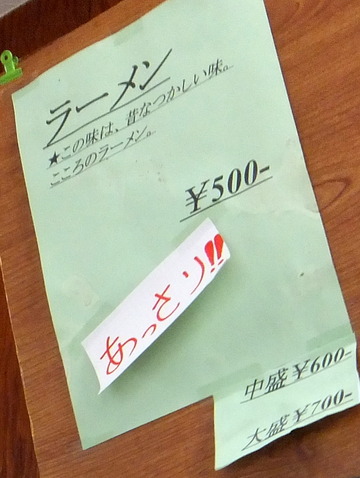 ラーメン
★この味は、昔なつかしい味。
こころのラーメン。
¥500-
あっさり!!
中盛¥600-
大盛¥700-